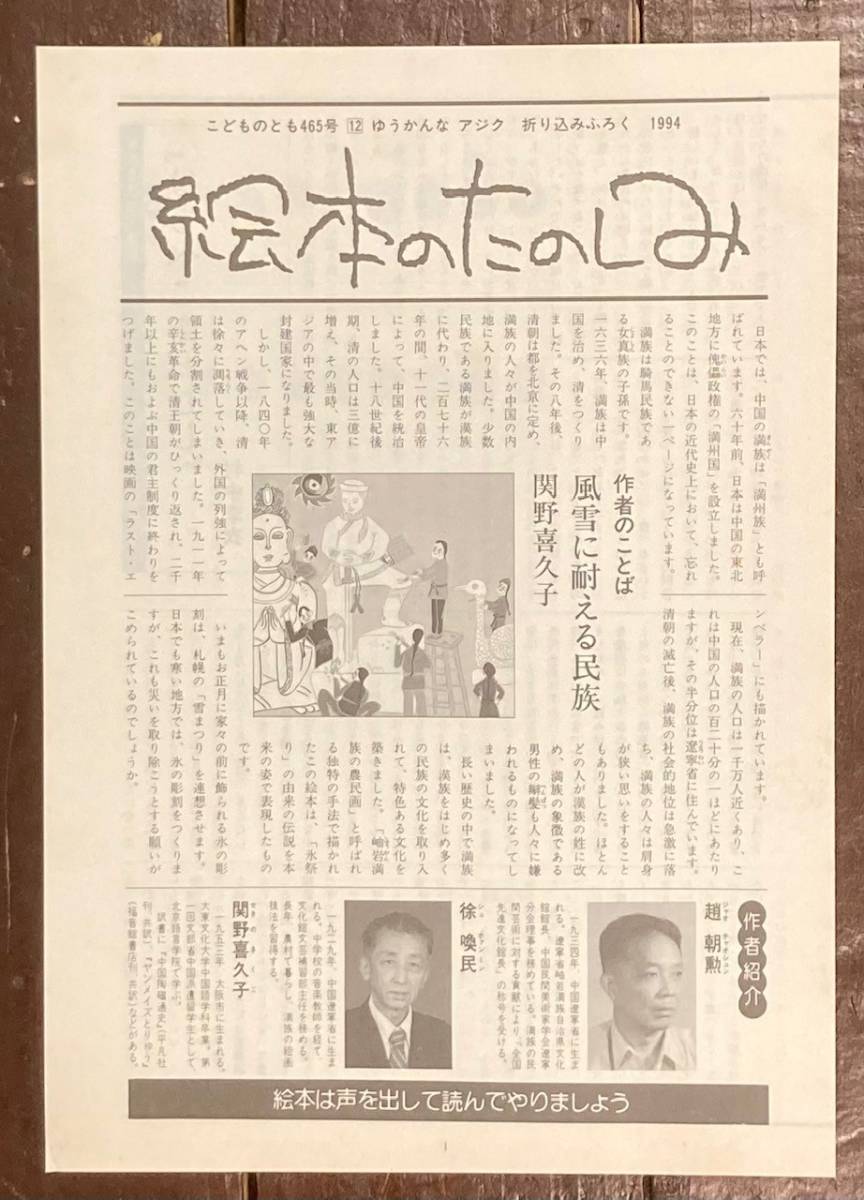 こどものとも465号 12 ゆうかんな アジク 折り込みふろく 1994
絵本のたのしみ
作者のことば
風雪に耐える民族
関野喜久子
日本では、中国の満族は「満州族」とも呼
ばれています。六十年前、日本は中国の東北
地方に傀儡政権の「満州国」を設立しました。
このことは、日本の近代史上において、忘れ
ることのできない一ページになっています。
満族は騎馬民族であ
る女真族の子孫です。
一六三六年、満族は中
国を治め、清をつくり
ました。その八年後、
清朝は都を北京に定め、
満族の人々が中国の内
地に入りました。少数
民族である満族が漢族
に代わり、二百七十六
年の間、十一代の皇帝
によって、中国を統治
しました。十八世紀後
期、清の人口は三億に
増え、その当時、東ア
ジアの中で最も強大な
封建国家になりました。
しかし、一八四〇年
のアヘン戦争以降、清
は徐々に凋落していき、外国の列強によって
領土を分割されてしまいました。一九一一年
の辛亥革命で清王朝がひっくり返され、二千
年以上にもおよぶ中国の君主制度に終わりを
つげました。このことは映画の「ラスト・エ
ンペラー」にも描かれています。
現在、満族の人口は一千万人近くあり、こ
れは中国の人口の百二十分の一ほどにあたり
ますが、その半分位は遼寧省に住んでいます。
清朝の滅亡後、満族の社会的地位は急激に落
ち、満族の人々は肩身
が狭い思いをすること
もありました。ほとん
どの人が漢族の姓に改
め、満族の象徴である
男性の辮髪も人々に嫌
われるものになってし
まいました。
長い歴史の中で満族
は、漢族をはじめ多く
の民族の文化を取り入
れて、特色ある文化を
築きました。「岫岩満
族の農民画」と呼ばれ
る独特の手法で描かれ
たこの絵本は、「氷祭
り」の由来の伝説を本
来の姿で表現したもの
です。
いまもお正月に家々の前に飾られる氷の彫
刻は、札幌の「雪まつり」を連想させます。
日本でも寒い地方では、氷の彫刻をつくりま
すが、これも災いを取り除こうとする願いが
こめられているのでしょうか。
作者紹介
趙 朝勲
ジャオ チャオシュン
一九三四年、中国遼寧省に生ま
れる。遼寧省岫岩満族自治県文化
館館長、中国民間美術家学会遼寧
分会理事を務めている。満族の民
間芸術に対する貢献により、「全国
先進文化館長」の称号を受ける。
徐 喚民
シュ ホァンミン
一九二九年、中国遼寧省に生ま
れる。中学校の音楽教師を経て、
文化館文芸補習部主任を務める。
長年、農村で暮らし、満族の絵画
技法を習得する。
関野喜久子
せきの きくこ
一九五三年、大阪市に生まれる。
大東文化大学中国語学科卒業。第
一回文部省中国派遣留学生として、
北京語言学院で学ぶ。
訳書に『中国陶磁通史』(平凡社
刊、共訳)、『ヤンメイズとりゅう』
(福音館書店刊、共訳)などがある。
絵本は声を出して読んでやりましょう
1